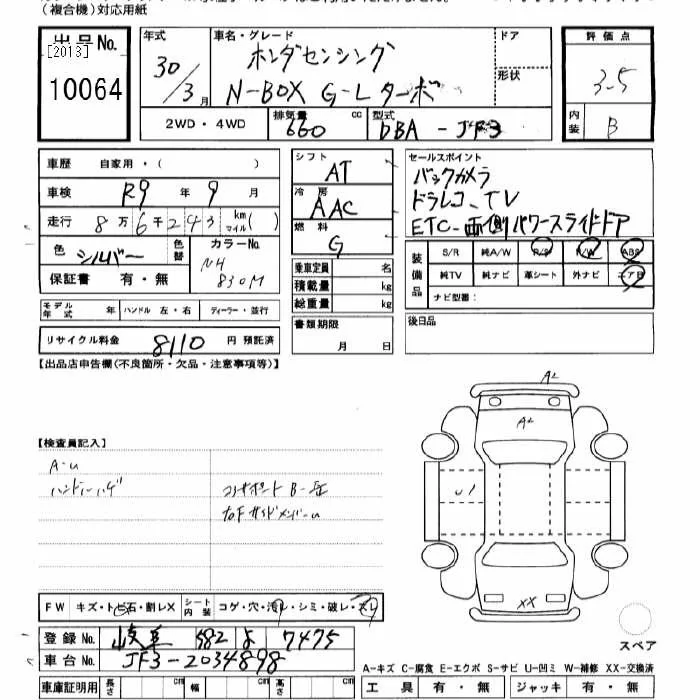 (複合機)対応用紙
出品No.
[2013]
10064
年式
30/3月
車名・グレード
ホンダセンシング
N-BOX G-Lターボ
ドア
形状
評価点
3.5
内装
B
2WD・4WD
排気量 660 cc
型式 DBA-JF3
車歴 自家用・( )
車検 R9年9月
走行 8万6千243km マイル( )
色 シルバー 色替
カラーNo. NH 830M
保証書 有・無
モデル年式 年 ハンドル 左・右 ディーラー・並行
リサイクル料金 8110 円 預託済
シフト AT
冷房 AAC
燃料 G
乗車定員 名
積載量 kg
総重量 kg
書類期限
月 日
セールスポイント
バックカメラ
ドラレコ、TV
ETC-両側パワースライドドア
装備品
S/R 純A/W P/S P/W ABS
純TV 純ナビ 革シート 外ナビ エアB
ナビ型番:
後日品
【出品店申告欄(不良箇所・欠品・注意事項等)】
【検査員記入】
A-U
コアサポートB-
右FサイドメンバーU
A2
A2
U1
XX
スペア
FW キズ・トビ石・割レX シート内装 コゲ・穴・汚レ・シミ・破レ・スレ
登録No. 岐阜 582 よ 7475
車台No. JF3-2034898
車庫証明用 長さ cm 幅 cm 高さ cm
A-キズ C-腐食 E-エクボ S-サビ U-凹ミ W-補修 XX-交換済
工具 有・無 ジャッキ 有・無